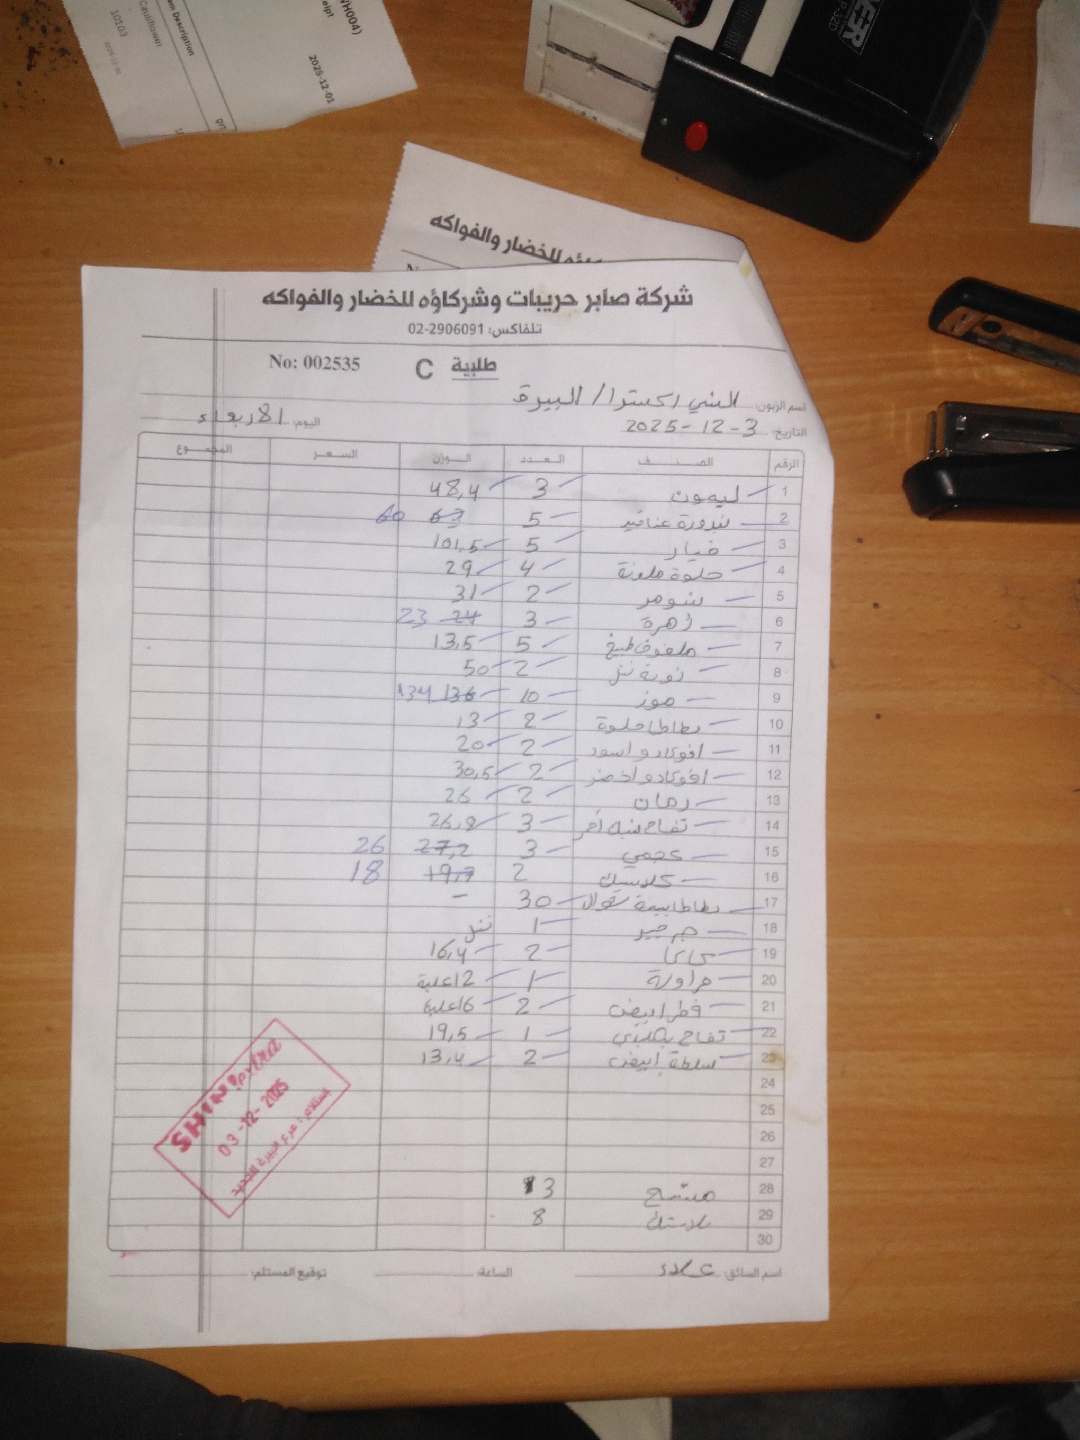 VH004)
eipt
2025-12-01
em Description
Cauliflower
10103
POWER
شركاؤه للخضار والفواكه
شركة صابر حريبات وشركاؤه للخضار والفواكه
تلفاكس: 02-2906091
طلبية C No: 002535
اسم الزبون: الشني اكسترا / البيرة
التاريخ: 3-12-2025 اليوم: الاربعاء
الرقم الصنف العدد الوزن السعر المجموع
1 ليمون 3 48,4
2 بندورة عناقيد 5 63 60
3 خيار 5 101,5
4 حلوة ملونة 4 29
5 شومر 2 31
6 زهرة 3 24 23
7 ملفوف طبخ 5 13,5
8 2 50
9 موز 10 136 134
10 بطاطا حلوة 2 13
11 افوكادو اسود 2 20
12 افوكادو اخضر 2 30,5
13 رمان 2 26
14 تفاح احمر 3 26,8
15 عجمي 3 27,2 26
16 كلاسيك 2 19,7 18
17 بطاطا بيبة شوال 30 -
18 جرجير 1
19 كاكا 2 16,4
20 فراولة 1 12 علبة
21 فطر ابيض 2 16 علبة
22 تفاح 1 19,5
23 سلطة ابيض 2 13,4
24
25
26
27
28 مشمح 3
29 بلاستك 8
30
SHINI extra
03-12-2025
استلام: فرع البيرة الجديد
اسم السائق: علاء الساعة: توقيع المستلم: